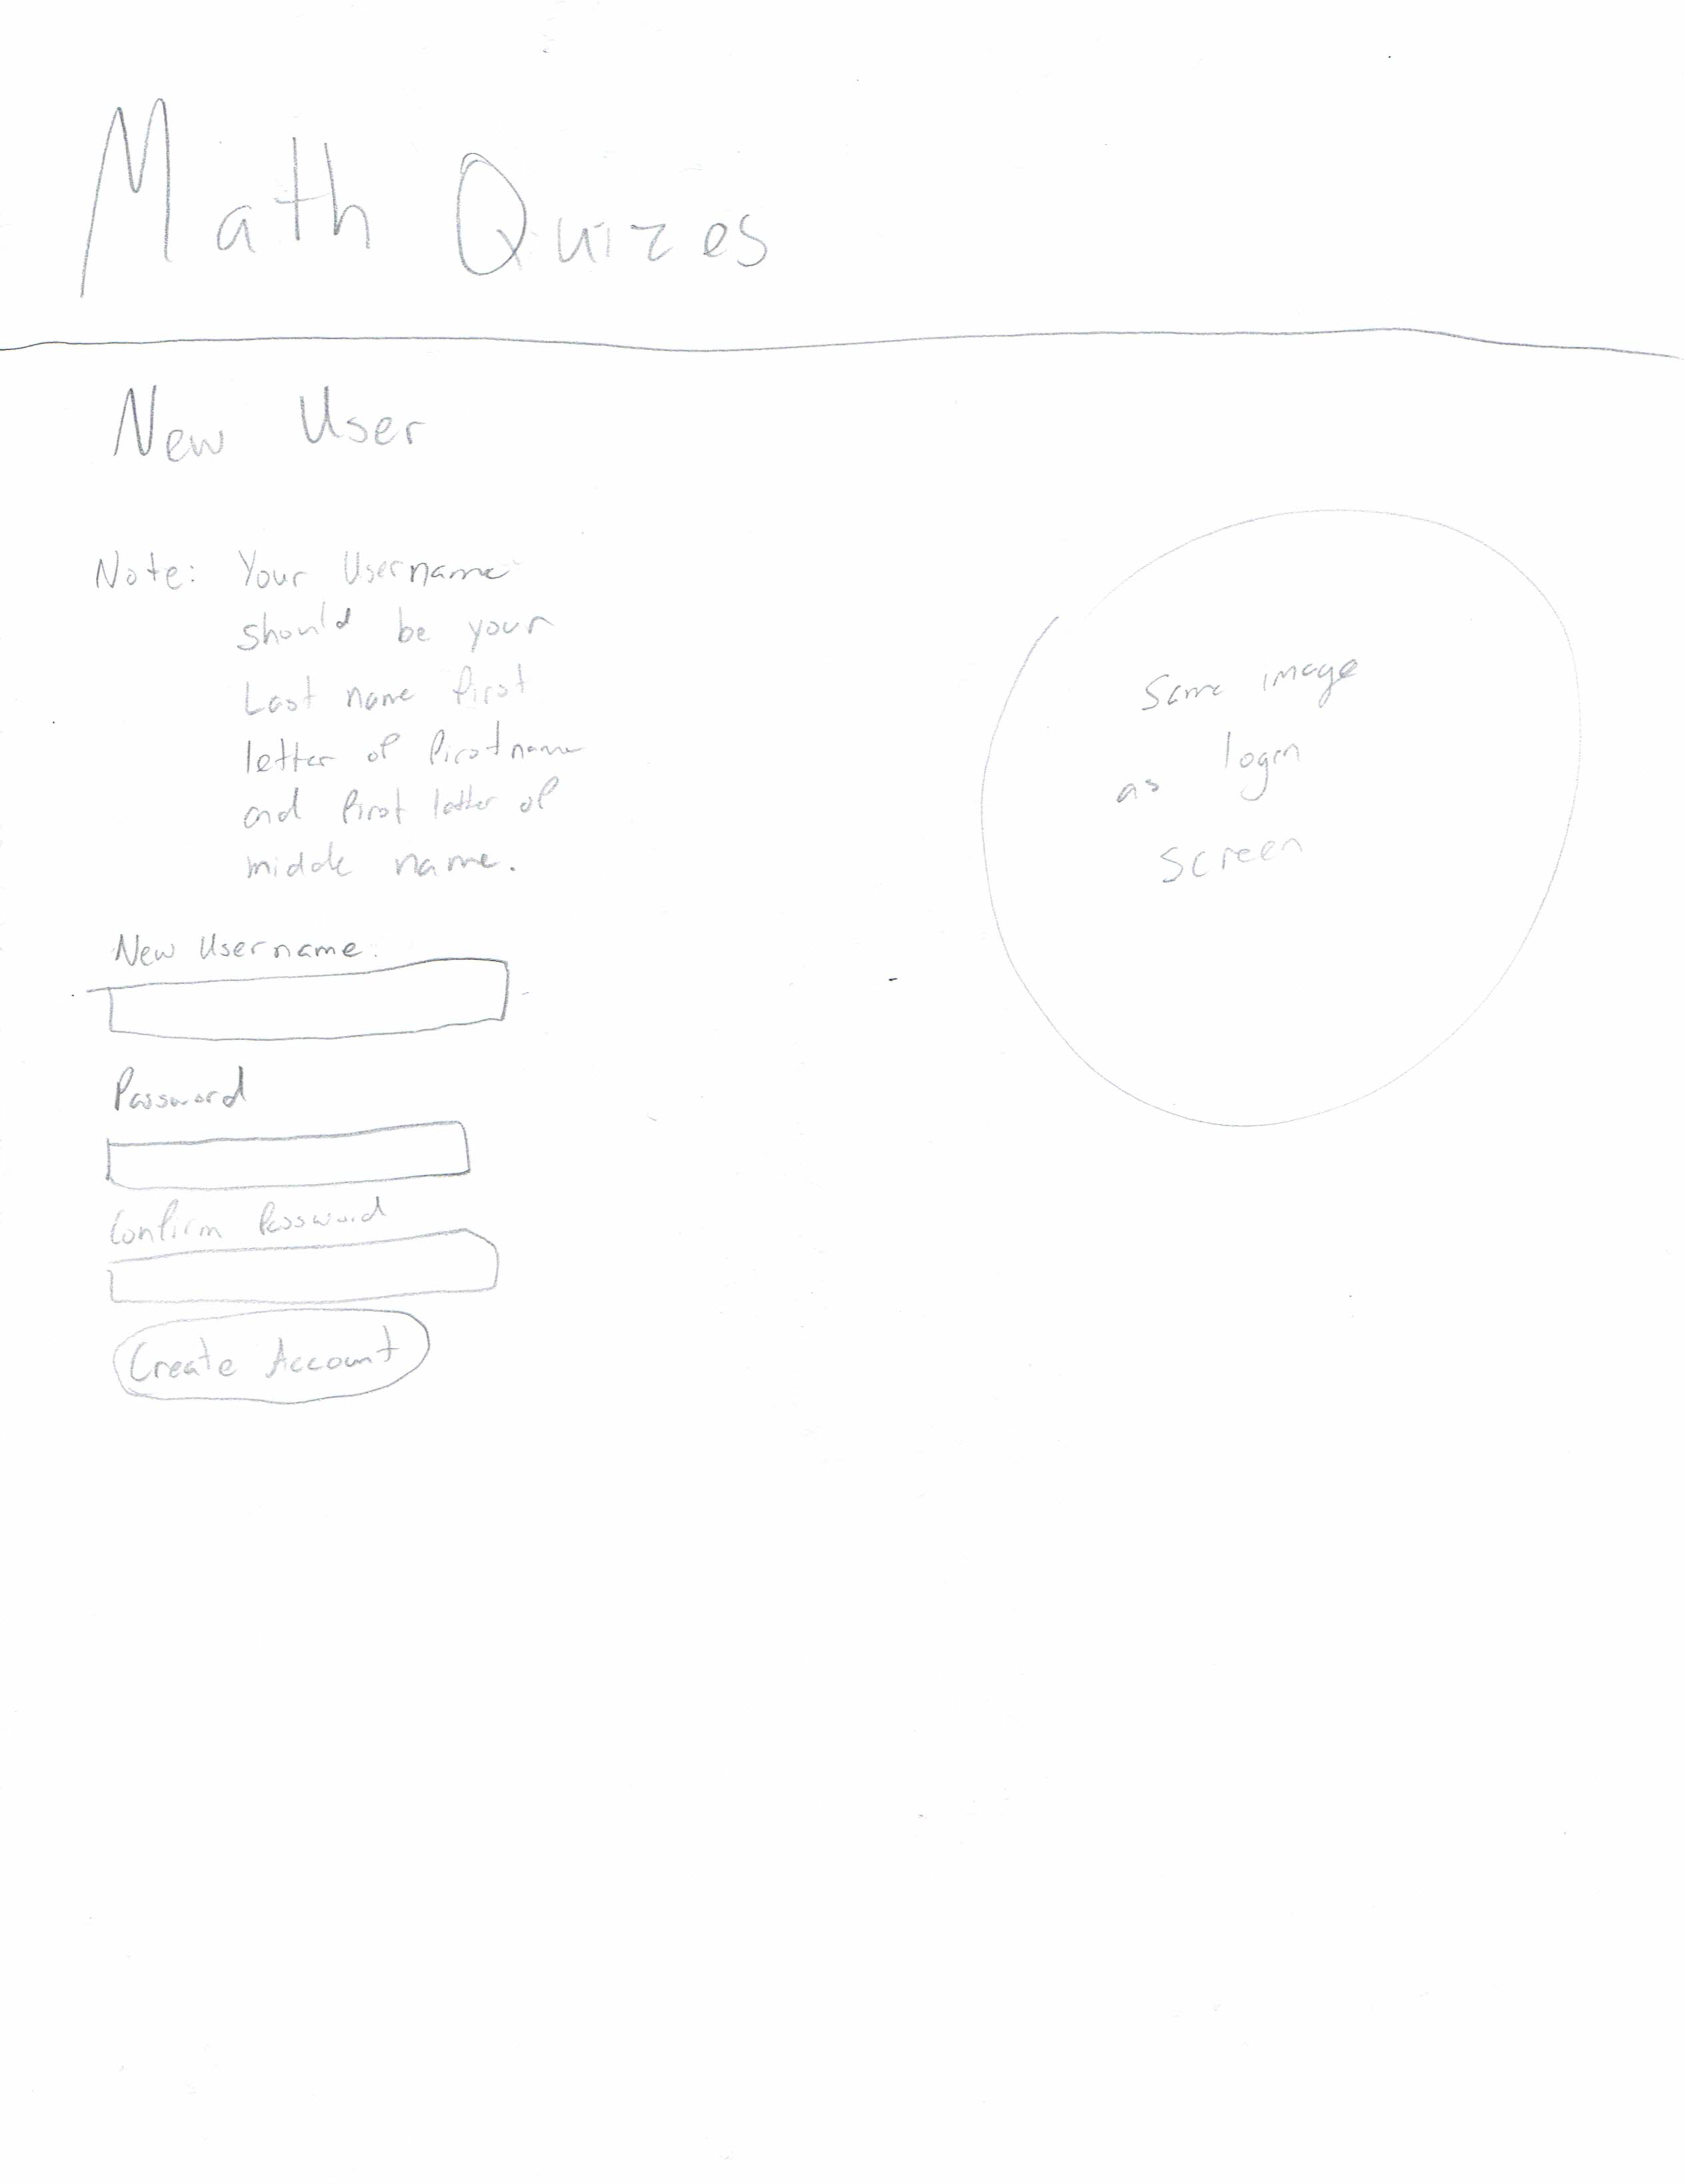 Math Quizes
New User
Note: Your Username
should be your
Last name first
letter of first name
and first letter of
middle name.
New Username:
Password
Confirm Password
Create Account
Same image
as login
screen